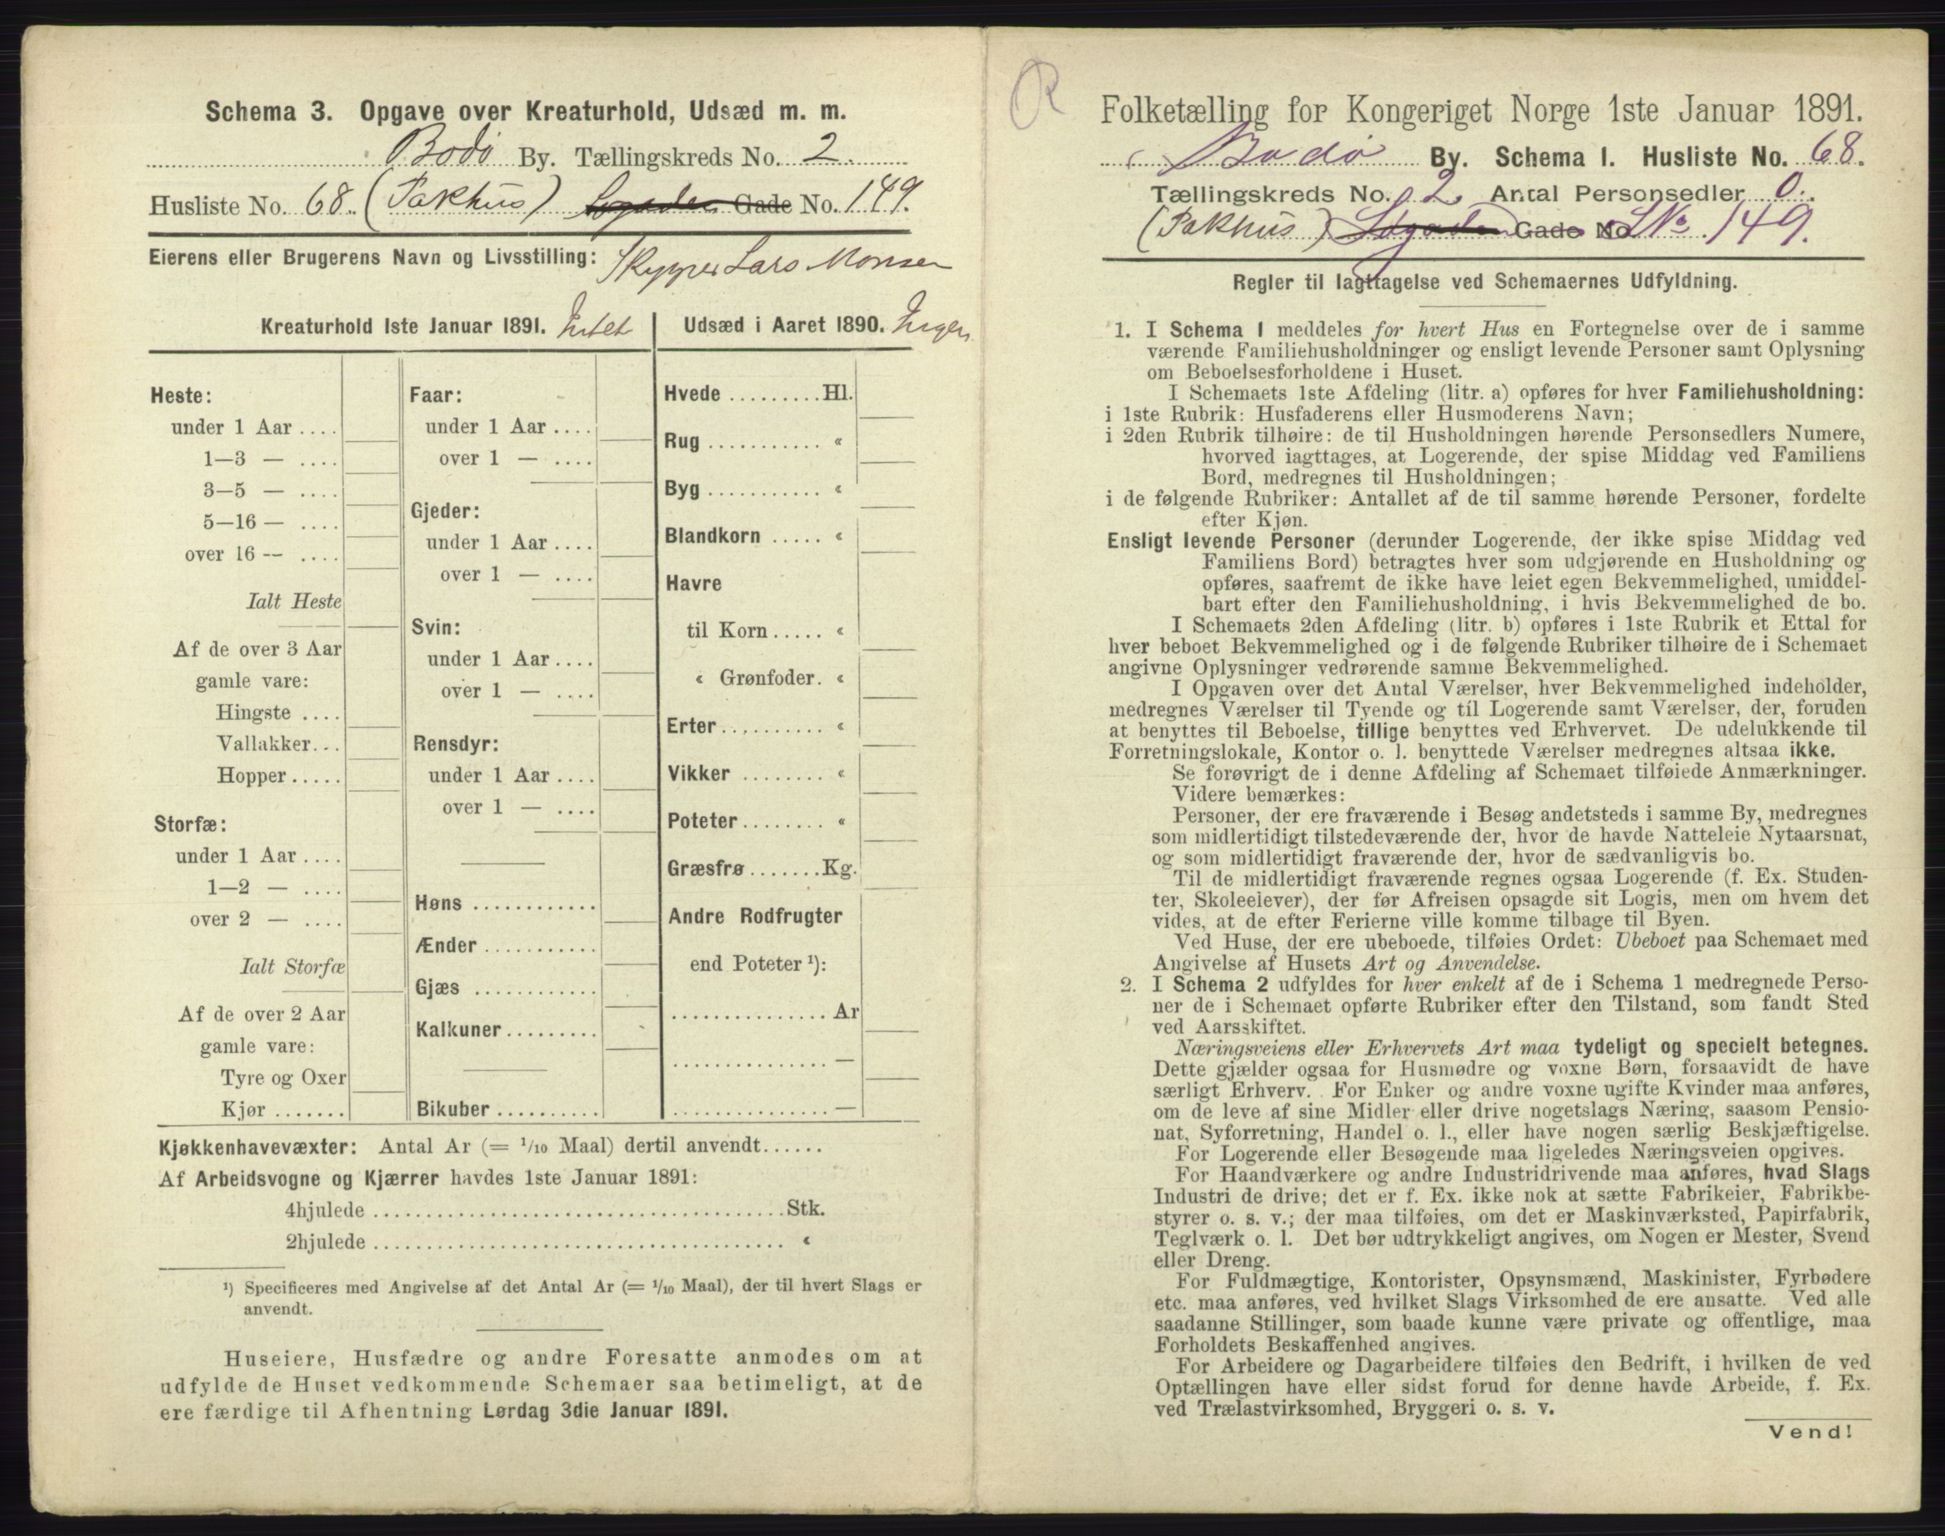 Schema 3. Opgave over Kreaturhold, Udsæd m. m.
Bodø By. Tællingskreds No. 2.
Husliste No. 68. (Pakhus) Søgaden Gade No. 149.
Eierens eller Brugerens Navn og Livsstilling: Skipper Lars Monsen
Kreaturhold 1ste Januar 1891. Intet
Heste:
under 1 Aar ....
1—3 — ....
3—5 — ....
5—16 — ....
over 16 — ....
Ialt Heste
Af de over 3 Aar
gamle vare:
Hingste ....
Vallakker...
Hopper.....
Storfæ:
under 1 Aar ....
1—2 — ....
over 2 — ....
Ialt Storfæ
Af de over 2 Aar
gamle vare:
Tyre og Oxer
Kjør .......
Faar:
under 1 Aar ....
over 1 — ....
Gjeder:
under 1 Aar ....
over 1 — ....
Svin:
under 1 Aar....
over 1 — ....
Rensdyr:
under 1 Aar ....
over 1 — ....
Høns ............
Ænder ...........
Gjæs ............
Kalkuner.........
Bikuber ..........
Udsæd i Aaret 1890. Ingen
Hvede .........Hl.
Rug ........... «
Byg ............ «
Blandkorn ..... «
Havre
til Korn ..... «
« Grønfoder. «
Erter .......... «
Vikker ......... «
Poteter........ «
Græsfrø.......Kg.
Andre Rodfrugter
end Poteter ¹):
...............Ar
...............—
...............—
Kjøkkenhavevæxter: Antal Ar (= 1/10 Maal) dertil anvendt......
Af Arbeidsvogne og Kjærrer havdes 1ste Januar 1891:
4hjulede .....................................Stk.
2hjulede ..................................... «
¹) Specificeres med Angivelse af det Antal Ar (= 1/10 Maal), der til hvert Slags er
anvendt.
Huseiere, Husfædre og andre Foresatte anmodes om at
udfylde de Huset vedkommende Schemaer saa betimeligt, at de
ere færdige til Afhentning Lørdag 3die Januar 1891.
R
Folketælling for Kongeriget Norge 1ste Januar 1891.
Bodø By. Schema 1. Husliste No. 68.
Tællingskreds No. 2 Antal Personsedler 0.
(Pakhus) Søgaden Gade No LNo. 149.
Regler til Iagttagelse ved Schemaernes Udfyldning.
1. I Schema 1 meddeles for hvert Hus en Fortegnelse over de i samme
værende Familiehusholdninger og ensligt levende Personer samt Oplysning
om Beboelsesforholdene i Huset.
I Schemaets 1ste Afdeling (litr. a) opføres for hver Familiehusholdning:
i 1ste Rubrik: Husfaderens eller Husmoderens Navn;
i 2den Rubrik tilhøire: de til Husholdningen hørende Personsedlers Numere,
hvorved iagttages, at Logerende, der spise Middag ved Familiens
Bord, medregnes til Husholdningen;
i de følgende Rubriker: Antallet af de til samme hørende Personer, fordelte
efter Kjøn.
Ensligt levende Personer (derunder Logerende, der ikke spise Middag ved
Familiens Bord) betragtes hver som udgjørende en Husholdning og
opføres, saafremt de ikke have leiet egen Bekvemmelighed, umiddel-
bart efter den Familiehusholdning, i hvis Bekvemmelighed de bo.
I Schemaets 2den Afdeling (litr. b) opføres i 1ste Rubrik et Ettal for
hver beboet Bekvemmelighed og i de følgende Rubriker tilhøire de i Schemaet
angivne Oplysninger vedrørende samme Bekvemmelighed.
I Opgaven over det Antal Værelser, hver Bekvemmelighed indeholder,
medregnes Værelser til Tyende og til Logerende samt Værelser, der, foruden
at benyttes til Beboelse, tillige benyttes ved Erhvervet. De udelukkende til
Forretningslokale, Kontor o. l. benyttede Værelser medregnes altsaa ikke.
Se forøvrigt de i denne Afdeling af Schemaet tilføiede Anmærkninger.
Videre bemærkes:
Personer, der ere fraværende i Besøg andetsteds i samme By, medregnes
som midlertidigt tilstedeværende der, hvor de havde Natteleie Nytaarsnat,
og som midlertidigt fraværende der, hvor de sædvanligvis bo.
Til de midlertidigt fraværende regnes ogsaa Logerende (f. Ex. Studen-
ter, Skoleelever), der før Afreisen opsagde sit Logis, men om hvem det
vides, at de efter Ferierne ville komme tilbage til Byen.
Ved Huse, der ere ubeboede, tilføies Ordet: Ubeboet paa Schemaet med
Angivelse af Husets Art og Anvendelse.
2. I Schema 2 udfyldes for hver enkelt af de i Schema 1 medregnede Perso-
ner de i Schemaet opførte Rubriker efter den Tilstand, som fandt Sted
ved Aarsskiftet.
Næringsveiens eller Erhvervets Art maa tydeligt og specielt betegnes.
Dette gjælder ogsaa for Husmødre og voxne Børn, forsaavidt de have
særligt Erhverv. For Enker og andre voxne ugifte Kvinder maa anføres,
om de leve af sine Midler eller drive nogetslags Næring, saasom Pensio-
nat, Syforretning, Handel o. l., eller have nogen særlig Beskjæftigelse.
For Logerende eller Besøgende maa ligeledes Næringsveien opgives.
For Haandværkere og andre Industridrivende maa anføres, hvad Slags
Industri de drive; det er f. Ex. ikke nok at sætte Fabrikeier, Fabrikbe-
styrer o. s. v.; der maa tilføies, om det er Maskinværksted, Papirfabrik,
Teglværk o. l. Det bør udtrykkeligt angives, om Nogen er Mester, Svend
eller Dreng.
For Fuldmægtige, Kontorister, Opsynsmænd, Maskinister, Fyrbødere
etc. maa anføres, ved hvilket Slags Virksomhed de ere ansatte. Ved alle
saadanne Stillinger, som baade kunne være private og offentlige, maa
Forholdets Beskaffenhed angives.
For Arbeidere og Dagarbeidere tilføies den Bedrift, i hvilken de ved
Optællingen have eller sidst forud for denne havde Arbeide, f. Ex.
ved Trælastvirksomhed, Bryggeri o. s. v.
Vend!